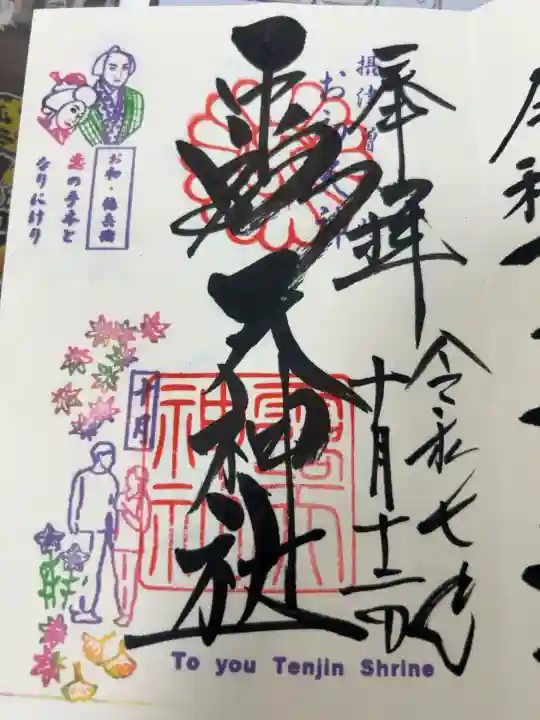 奉拝
令和七年
十月十二日
摂津國
お初天神
露天神社
露天神社
お初・徳兵衛
恋の手本と
なりにけり
十月
To you Tenjin Shrine
令和